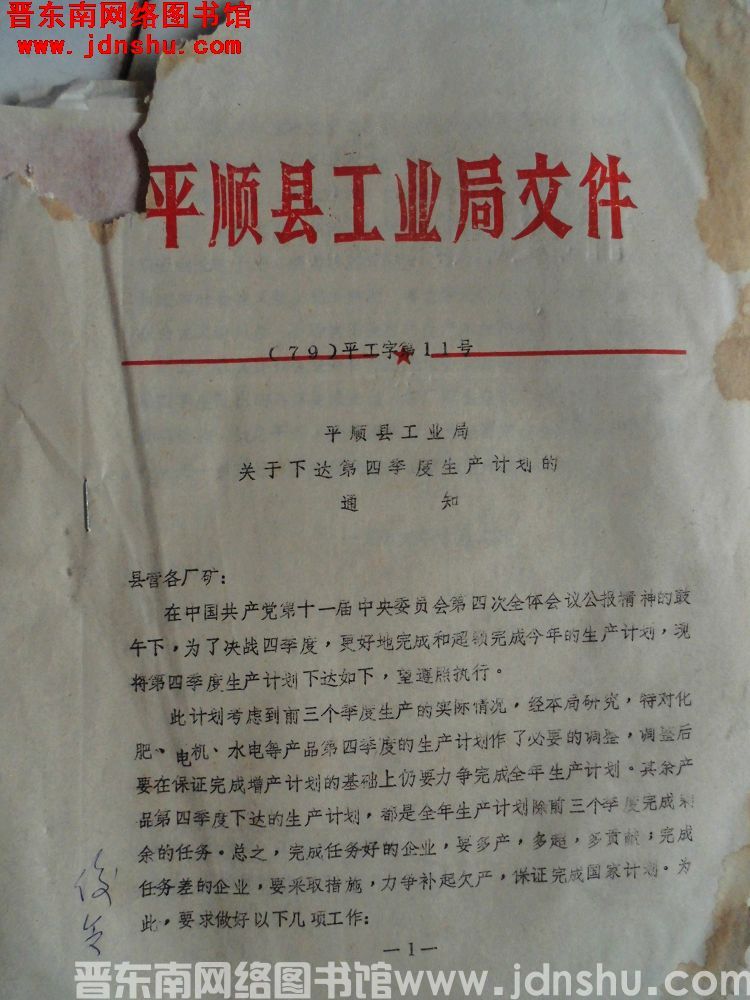 晋东南网络图书馆
www.jdnshu.com
平顺县工业局文件
(79)平工字第11号
平顺县工业局
关于下达第四季度生产计划的
通 知
县营各厂矿：
在中国共产党第十一届中央委员会第四次全体会议公报精神的鼓
午下，为了决战四季度，更好地完成和超额完成今年的生产计划，现
将第四季度生产计划下达如下，望遵照执行。
此计划考虑到前三个季度生产的实际情况，经本局研究，特对化
肥、电机、水电等产品第四季度的生产计划作了必要的调整，调整后
要在保证完成增产计划的基础上仍要力争完成全年生产计划。其余产
品第四季度下达的生产计划，都是全年生产计划除前三个季度完成剩
余的任务。总之，完成任务好的企业，要多产，多超，多贡献；完成
任务差的企业，要采取措施，力争补起欠产，保证完成国家计划。为
此，要求做好以下几项工作：
—1—
晋东南网络图书馆www.jdnshu.com